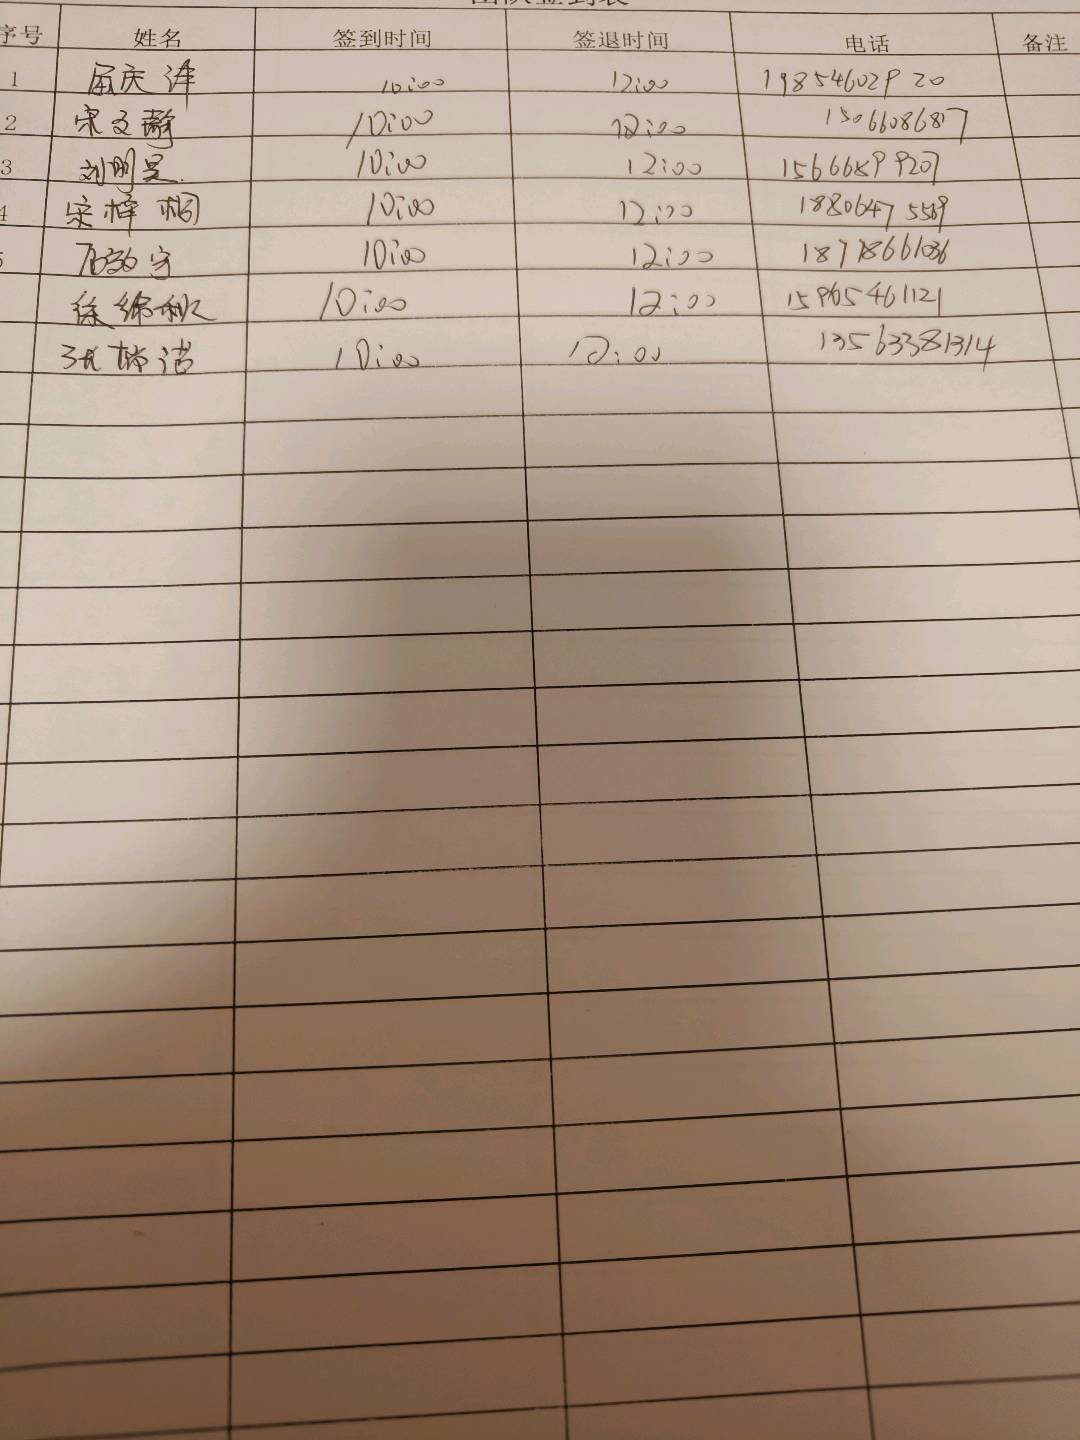 团队签到表
序号 姓名 签到时间 签退时间 电话 备注
1 屈庆泽 10:00 12:00 19854602920
2 宋文静 10:00 12:00 15066086817
3 刘明昊 10:00 12:00 15666899207
4 宋梓桐 10:00 12:00 18806475569
5 10:00 12:00 18778661036
徐绵秋 10:00 12:00 15965461121
张梯浩 10:00 12:00 13563381314